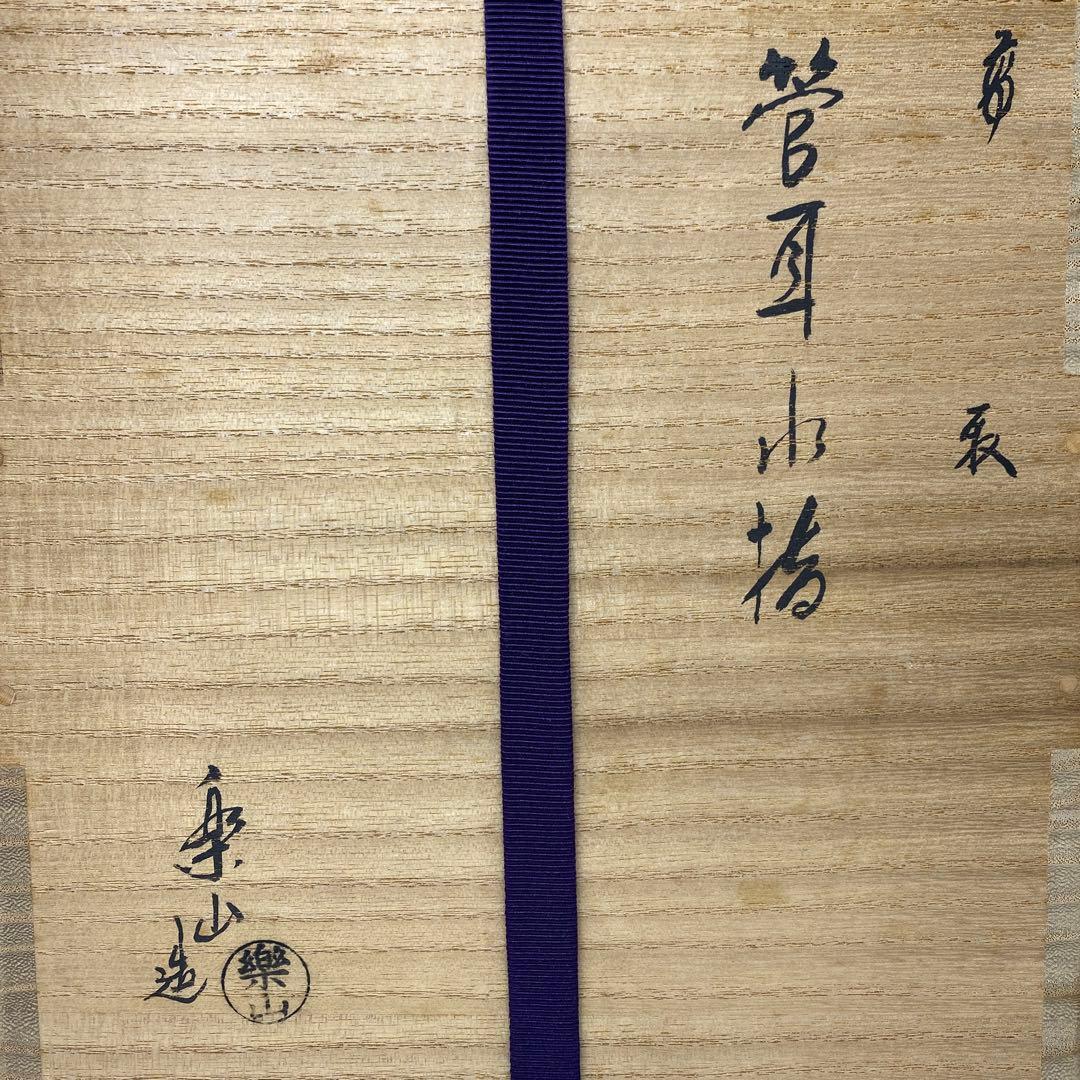 髙取
管耳水指
楽山造
樂山